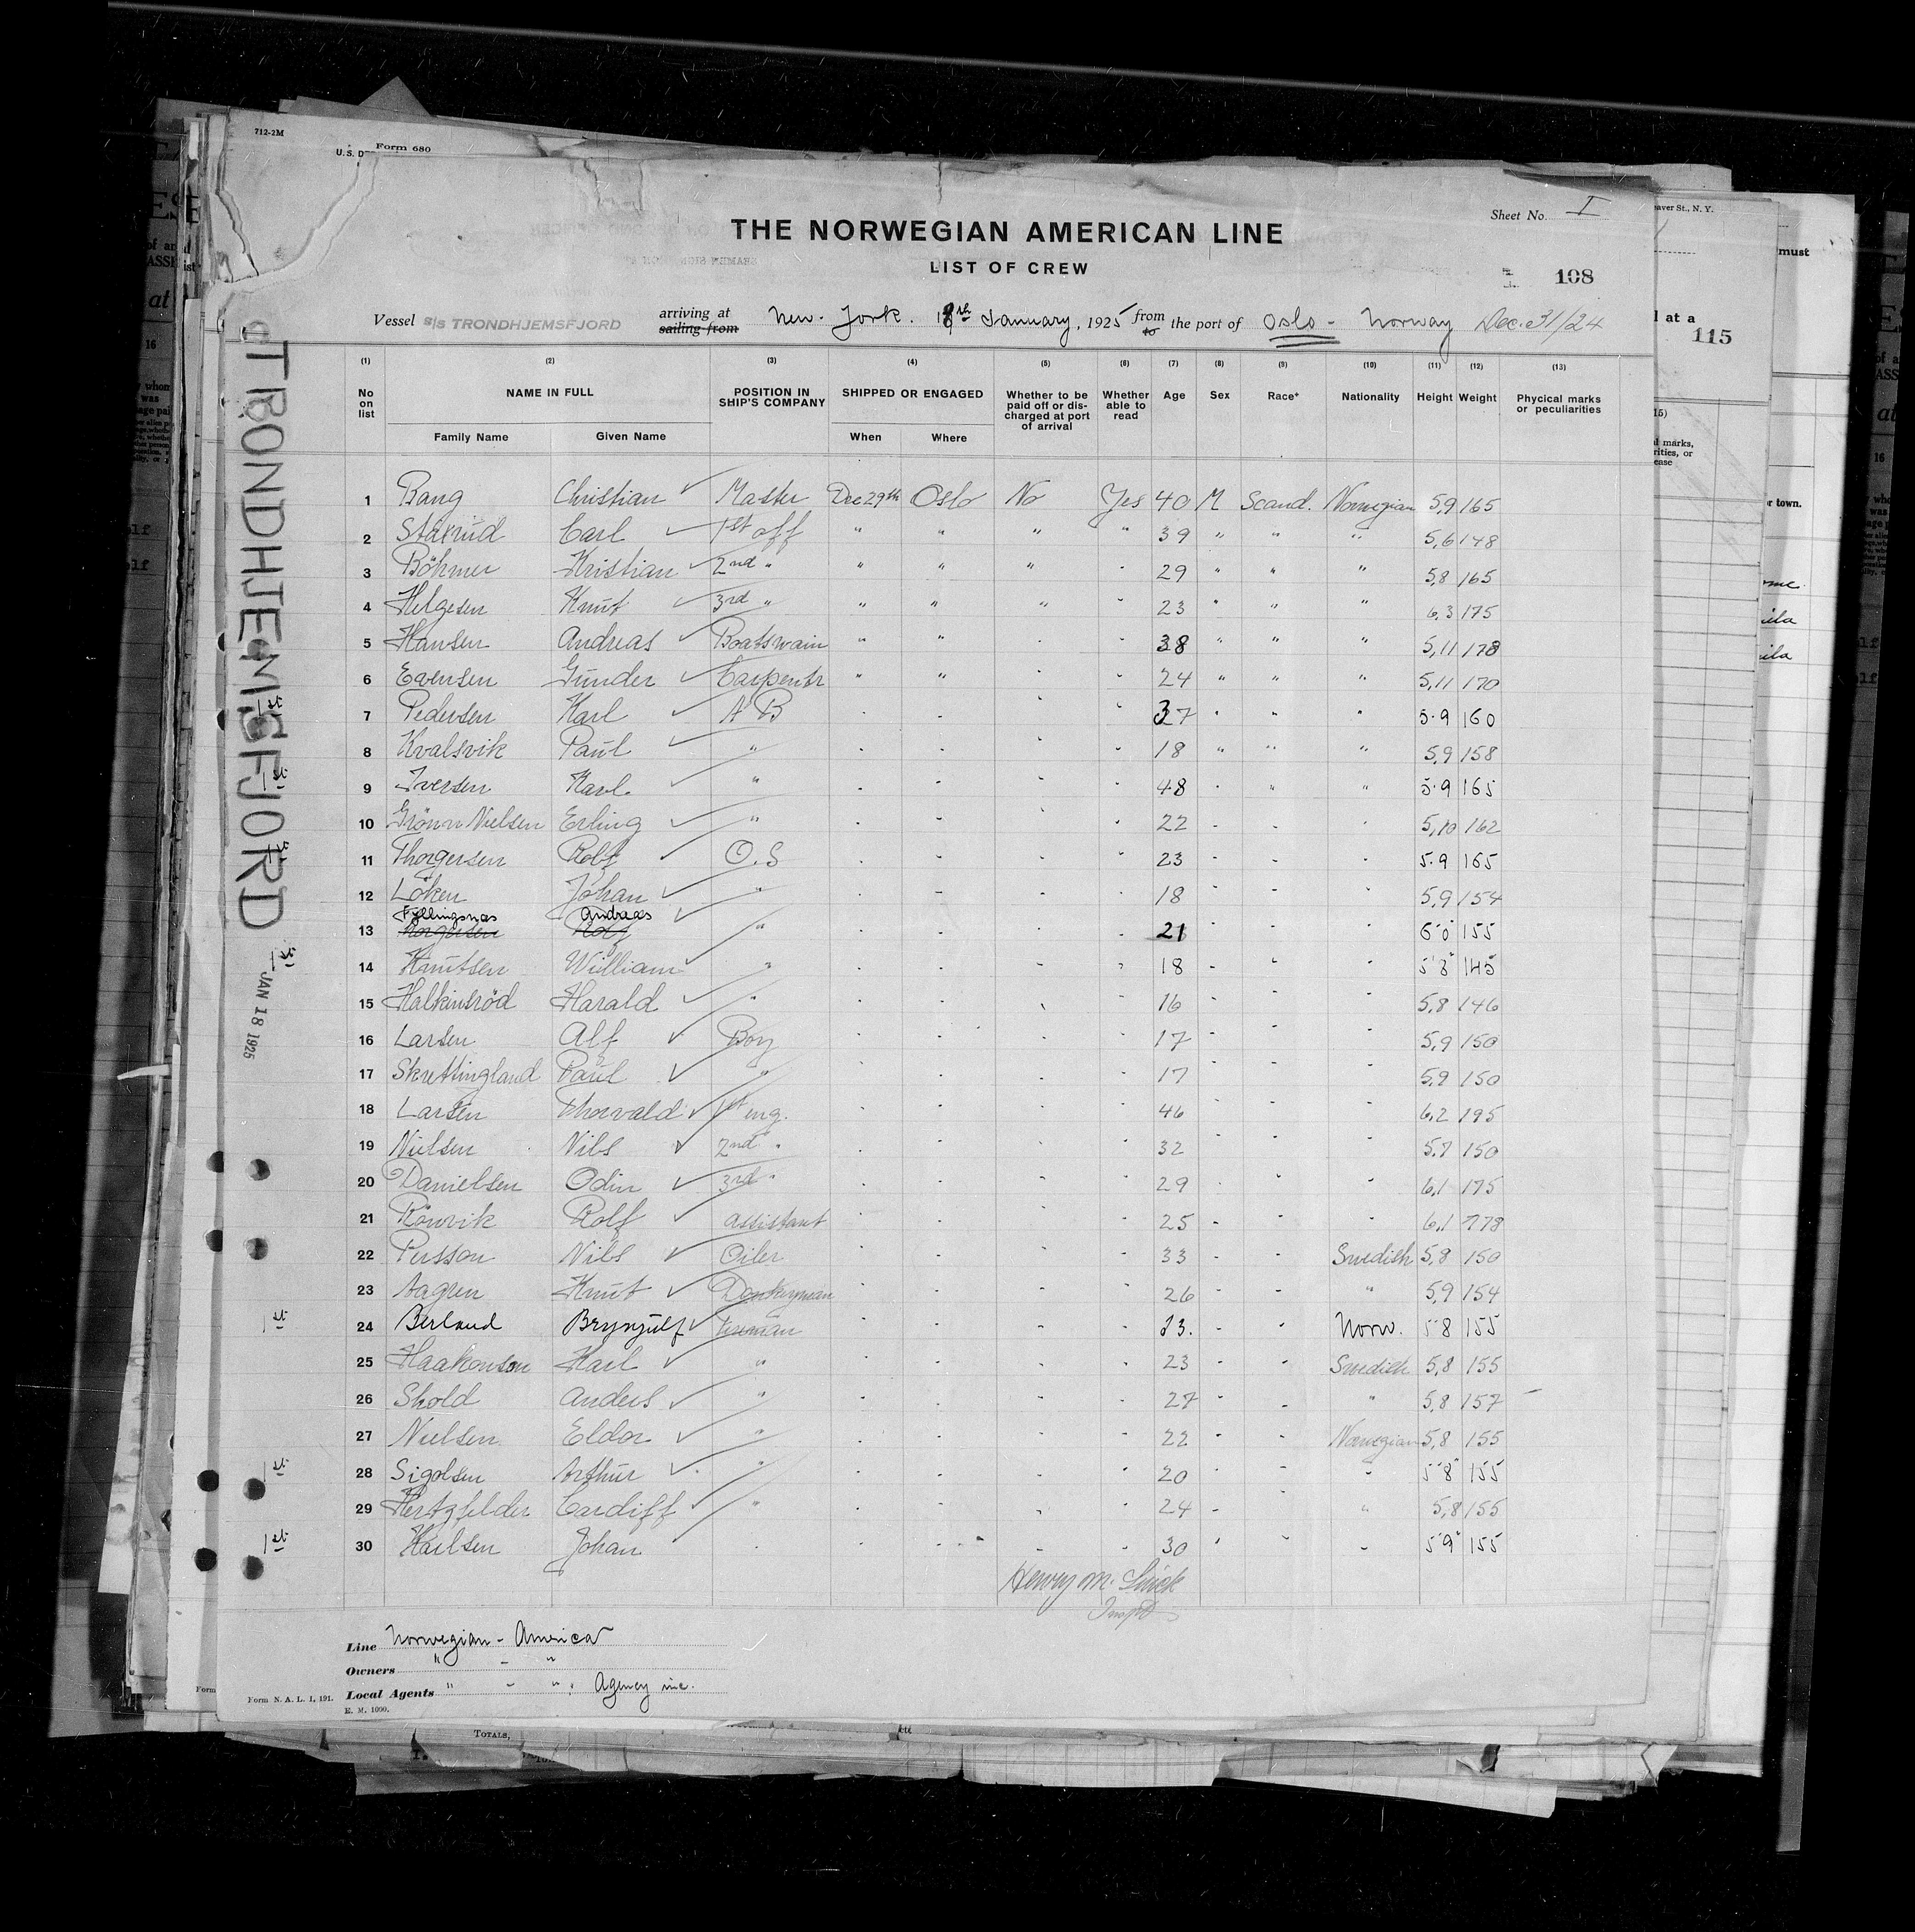 712-2M
Form 680
U. S. D
Sheet No. I
THE NORWEGIAN AMERICAN LINE
LIST OF CREW
108
Vessel S/S TRONDHJEMSFJORD arriving at sailing from New-York. 18th January, 1925 from to the port of Oslo - Norway Dec. 31/24
(1) (2) (3) (4) (5) (6) (7) (8) (9) (10) (11) (12) (13)
No on list NAME IN FULL POSITION IN SHIP'S COMPANY SHIPPED OR ENGAGED Whether to be paid off or discharged at port of arrival Whether able to read Age Sex Race+ Nationality Height Weight Phycical marks or peculiarities
Family Name Given Name When Where
1 Bang Christian Master Dec 29th Oslo No Yes 40 M Scand. Norwegian 5,9 165
2 Staxrud Carl 1st off " " " 39 " " " 5,6 148
3 Böhmer Kristian 2nd " " " " " 29 " " " 5,8 165
4 Helgesen Knut 3rd " " " " " 23 " " " 6,3 175
5 Hansen Andreas Boatswain " " " " 38 " " " 5,11 178
6 Evensen Gunder Carpentr " " " " 24 " " " 5,11 170
7 Pedersen Karl A B " " " " 37 " " " 5.9 160
8 Kvalsvik Paul " " " " " 18 " " " 5,9 158
9 Iversen Karl. " " " " " 48 " " " 5.9 165
10 Grönn Nielsen Erling " " " " " 22 " " " 5,10 162
11 Thorgersen Rolf O.S " " " " 23 " " " 5.9 165
12 Löken Johan " " " " " 18 " " " 5,9 154
13 Fyllingsnæs Andreas " " " " " 21 " " " 6'0" 155
14 Knutsen William " " " " " 18 " " " 5'8" 145
15 Halkinsröd Harald " " " " " 16 " " " 5,8 146
16 Larsen Alf Boy " " " " 17 " " " 5,9 150
17 Skrettingland Paul " " " " " 17 " " " 5,9 150
18 Larsen Thorvald 1st eng. " " " " 46 " " " 6,2 195
19 Nielsen Nils 2nd " " " " " 32 " " " 5.7 150
20 Danielsen Odin 3rd " " " " " 29 " " " 6,1 175
21 Rönvik Rolf assistant " " " " 25 " " " 6,1 178
22 Persson Nils Oiler " " " " 33 " " Swedish 5,8 150
23 Aagren Knut Donkeyman " " " " 26 " " " 5,9 154
1st 24 Berland Brynjulf Fireman " " " " 23. " " Norw. 5'8 155
25 Haakonson Karl " " " " " 23 " " Swedish 5,8 155
26 Skold Anders " " " " " 27 " " " 5,8 157
27 Nielsen Eldor " " " " " 22 " " Norwegian 5,8 155
1st 28 Sigolsen Arthur " " " " " 20 " " " 5'8" 155
29 Hertzfelder Cardiff " " " " " 24 " " " 5,8 155
1st 30 Karlsen Johan " " " " " 30 " " " 5'9" 155
Henry M.
Insptr
Line Norwegian - America
Owners " - "
Local Agents " - " Agency inc.
Form N. A. L. 1, 191.
E. M. 1090.
TRONDHJEMSFJORD
JAN 18 1925
aver St., N. Y.
must
l at a
115
l marks,
rities, or
ease
r town.
TOTALS,